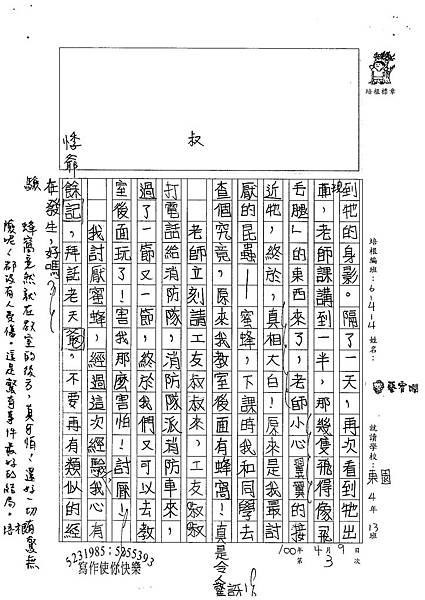 培根標章
培根編班：6-4-4 姓名：
就讀學校：東園 4年13班
100年4月9日
第3次
到牠的身影。隔了一天，再次看到牠出
現，老師課講到一半，那幾隻飛得像飛
毛腿」的東西來了，老師小心翼翼的接
近牠，終於，真相大白！原來是我最討
厭的昆蟲——蜜蜂，下課時我和同學去
查個究竟，原來我教室後面有蜂窩！真是令人
老師立刻請工友叔叔來，工友叔叔
打電話給消防隊，消防隊派消防車來，
過了一節又一節，終於我們又可以去教
室後面玩了！害我那麼害怕！討厭！
我討厭蜜蜂，經過這次經驗我心有
餘悸，拜託老天爺，不要再有類似的經
驗在發生，好嗎？
叔
悸 爺
蜂窩竟然就在教室的後方，真可怕！還好一切
都沒有人受傷。這是
5231985；5255393
寫作使你快樂